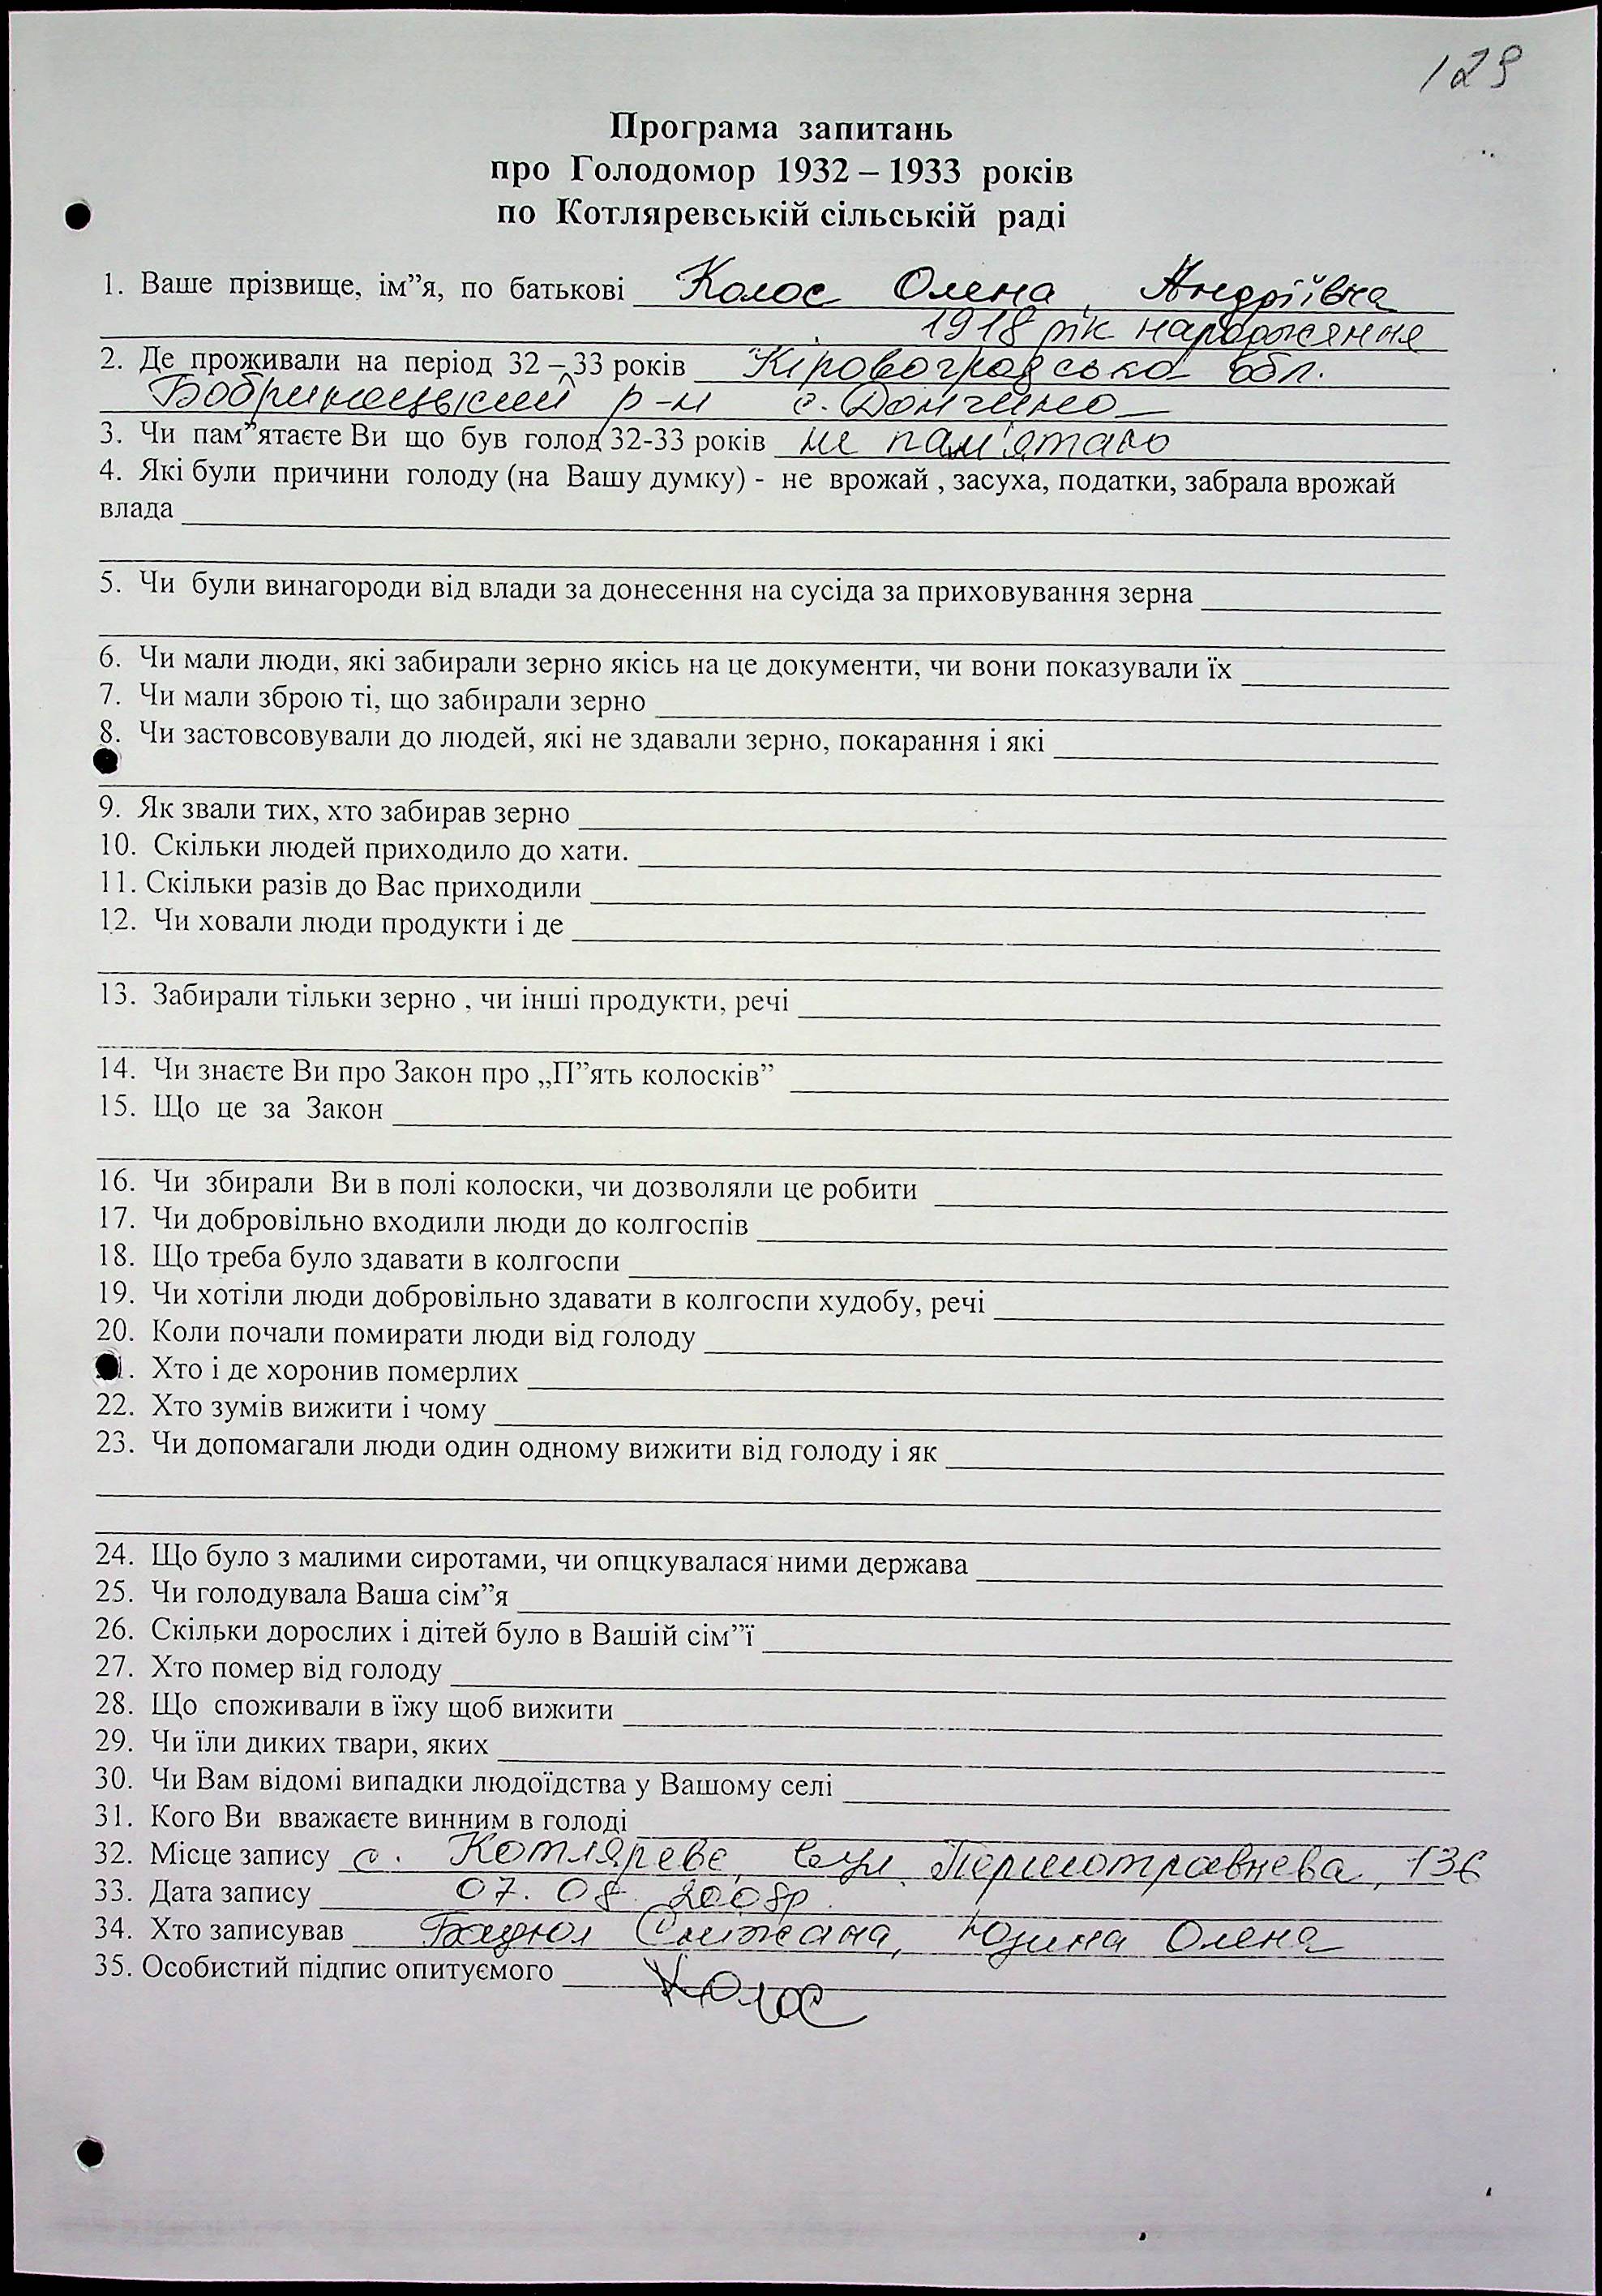 129
Програма запитань
про Голодомор 1932 – 1933 років
по Котляревській сільській раді
1. Ваше прізвище, ім”я, по батькові Колос Олена Андріївна
1918 рік народження
2. Де проживали на період 32 – 33 років Кіровоградська обл.
Бобринецький р-н с.
3. Чи пам”ятаєте Ви що був голод 32-33 років не пам'ятаю
4. Які були причини голоду (на Вашу думку) - не врожай , засуха, податки, забрала врожай
влада
5. Чи були винагороди від влади за донесення на сусіда за приховування зерна
6. Чи мали люди, які забирали зерно якісь на це документи, чи вони показували їх
7. Чи мали зброю ті, що забирали зерно
8. Чи застовсовували до людей, які не здавали зерно, покарання і які
9. Як звали тих, хто забирав зерно
10. Скільки людей приходило до хати.
11. Скільки разів до Вас приходили
12. Чи ховали люди продукти і де
13. Забирали тільки зерно , чи інші продукти, речі
14. Чи знаєте Ви про Закон про „П”ять колосків”
15. Що це за Закон
16. Чи збирали Ви в полі колоски, чи дозволяли це робити
17. Чи добровільно входили люди до колгоспів
18. Що треба було здавати в колгоспи
19. Чи хотіли люди добровільно здавати в колгоспи худобу, речі
20. Коли почали помирати люди від голоду
1. Хто і де хоронив померлих
22. Хто зумів вижити і чому
23. Чи допомагали люди один одному вижити від голоду і як
24. Що було з малими сиротами, чи опцкувалася ними держава
25. Чи голодувала Ваша сім”я
26. Скільки дорослих і дітей було в Вашій сім”ї
27. Хто помер від голоду
28. Що споживали в їжу щоб вижити
29. Чи їли диких твари, яких
30. Чи Вам відомі випадки людоїдства у Вашому селі
31. Кого Ви вважаєте винним в голоді
32. Місце запису с. Котляреве, вул. Першотравнева, 136
33. Дата запису 07. 08. 2008р.
34. Хто записував Сніжана, Юзина Олена
35. Особистий підпис опитуємого Колос